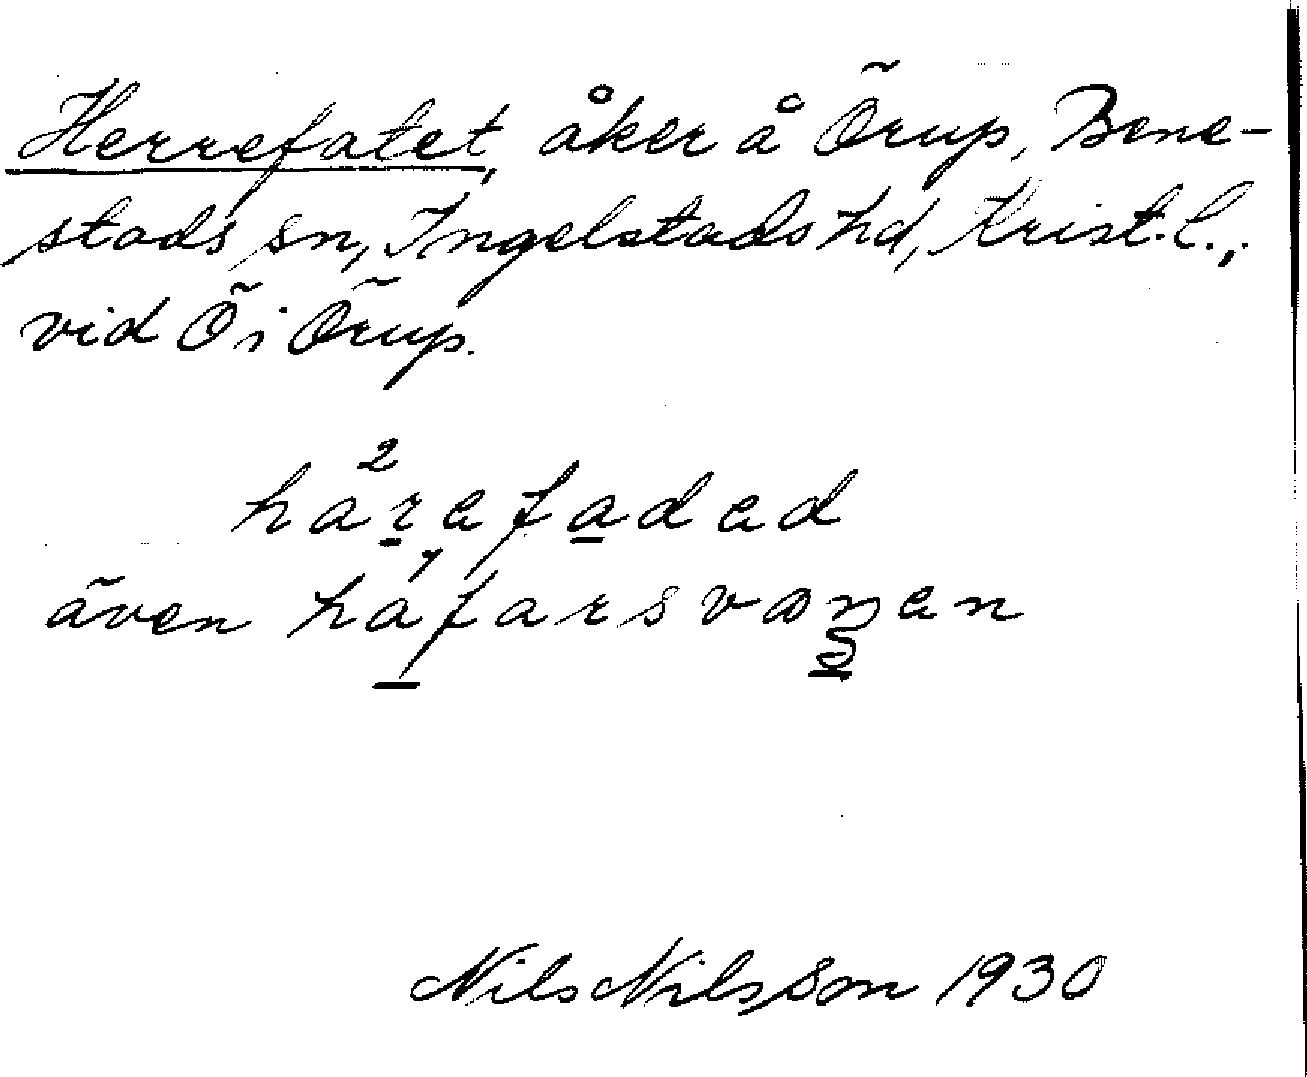 Herrefatet, åker å Örup, Bene-
stads sn, Ingelstads hd, Krist. l.,
vid Ö i Örup.
härefaded
även håfarsvaŋen
Nils Nilsson 1930